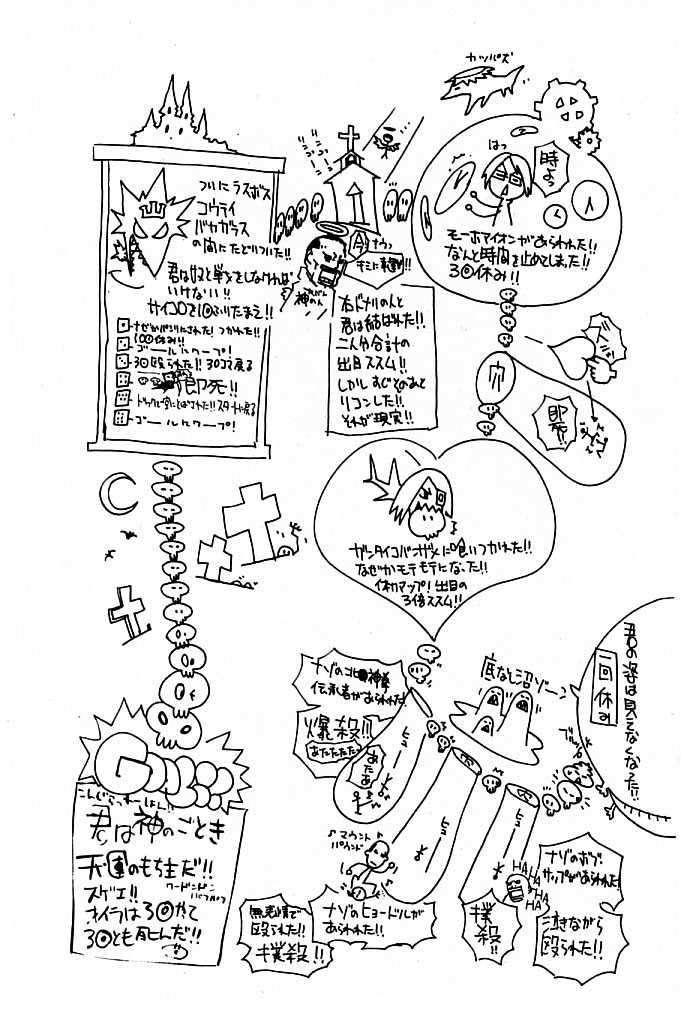 カツパズ
はっ
時よっ
モーホマイオンがあらわれた!!
なんと時間を止めてしまった!!
3回休み!!
ついにラスボス
コウテイ
バヤカラス
の間にたどりついた!!
君は奴と戦をしなければ
いけない!!
サイコロを1回ふりたまえ!!
100回休み!!
ゴールにワープ!
3回殴られた!!30コマ戻る
即死!!
ゴールにワープ!
神のん
右ドナリのんと
君は結ばれた!!
二人分合計の
出目ススム!!
しかしすぐそのあと
リコンした!!
それが現実!!
穴
即死!!
ガンタイコバンザメに喰いつかれた!!
なぜかモテモテになった!!
体力マップ!出目の
3倍ススム!!
君の姿は見えなくなった!!
一回休み
底なし沼ゾーン
ナゾの北神拳
伝承者があらわれた!
爆殺!!
あたたたた
あたあ
ヒュー
ヒュー
ヒュー
♪マウント♪
パウンド
ナゾのヒョードルが
あらわれた!!
無表情で
殴られた!!
撲殺!!
撲殺!!
HAHA
HAHA
HA
ナゾのボブ
サップがあらわれた!
泣きながら
殴られた!!
GOAL
こんぐらっちゅれーしょん!!
君は神のごとき
天運のもち主だ!!
スゲエ!!
オイラは3回やって
3回とも死んだ!!